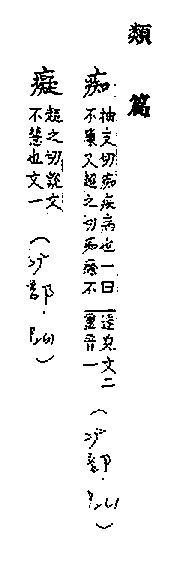 類篇
痴
抽支切痴疾病也一曰
不又超之切痴癡不
文二
音一
(疒部.)
癡
超之切說文
不慧也文一
(疒部.)